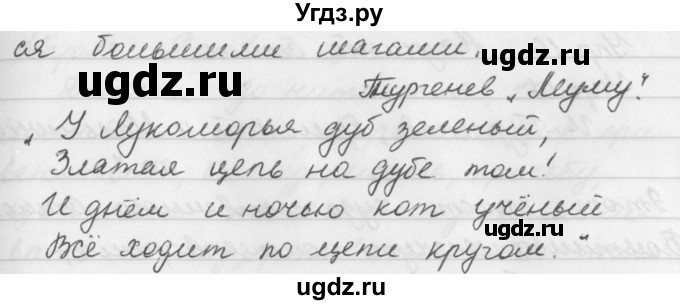 Угдз.ру
ся большими шагами.
Тургенев „Муму".
„У Лукоморья дуб зеленый,
Златая цепь на дубе том!
И днём и ночью кот учёный
Всё ходит по цепи кругом."
ugdz.ru ugdz.ru
ugdz.ru ugdz.ru
ugdz.ru ugdz.ru
ugdz.ru ugdz.ru